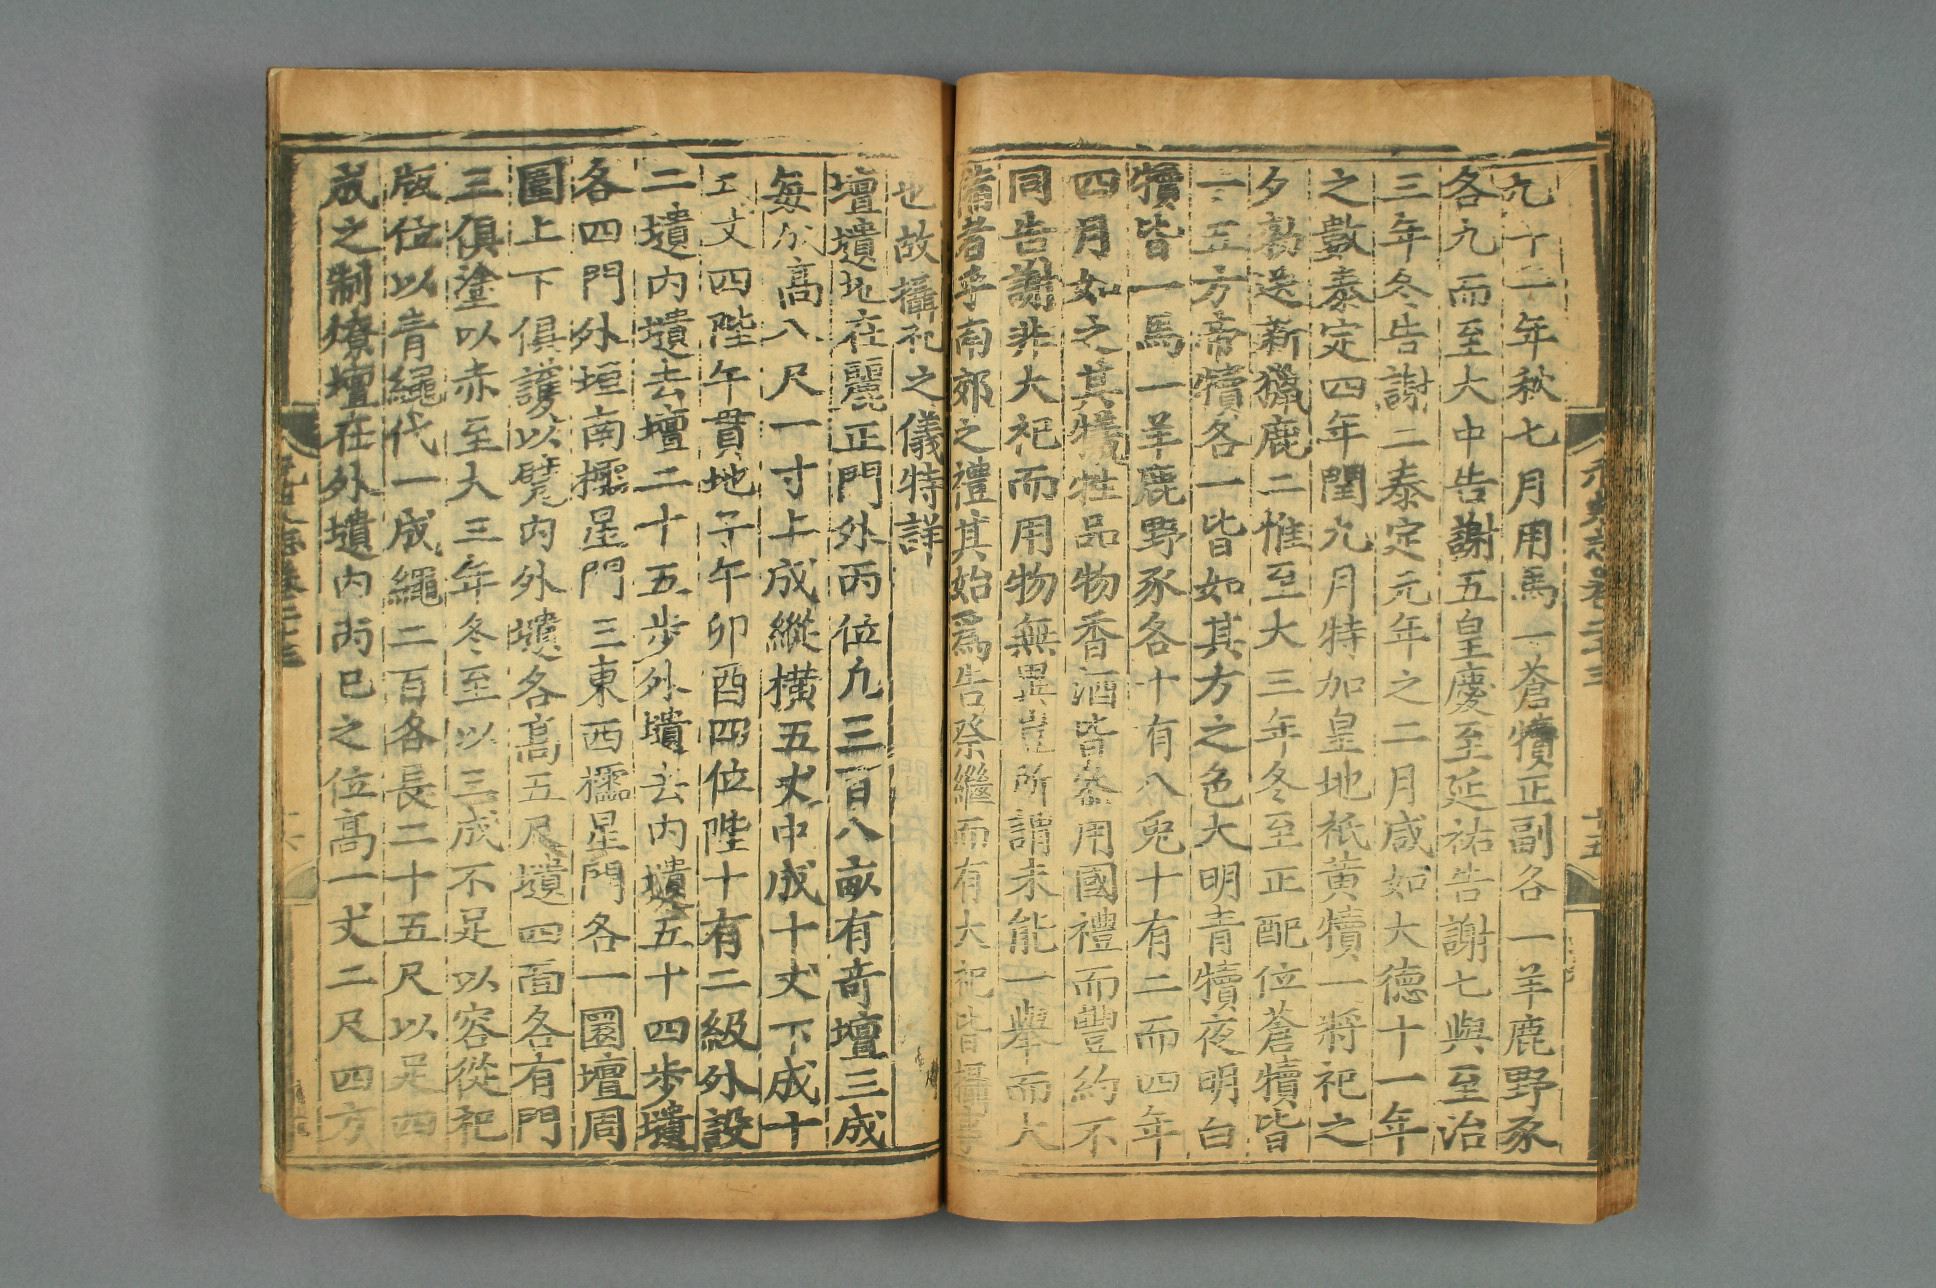 元史志卷二十三
十五
九十二年秋七月用馬一蒼犢正副各一羊鹿野豕
各九而至大中告謝五皇慶至延祐告謝七與至治
三年冬告謝二泰定元年之二月咸如大德十一年
之數泰定四年閏九月特加皇地祇黃犢一將祀之
夕勑送新獵鹿二惟至大三年冬至正配位蒼犢皆
一五方帝犢各一皆如其方之色大明青犢夜明白
犢皆一馬一羊鹿野豕各十有八兔十有二而四年
四月如之其犧牲品物香酒皆參用國禮而豐約不
同告謝非大祀而用物無異豈所謂未能一舉而大
備者乎南郊之禮其始爲告祭繼而有大祀皆攝事
也故攝祀之儀特詳
壇壝地在麗正門外丙位凡三百八畝有奇壇三成
每成高八尺一寸上成縱橫五丈中成十丈下成十
五丈四陛午貫地子午卯酉四位陛十有二級外設
二壝內壝去壇二十五步外壝去內壝五十四步壝
各四門外垣南櫺星門三東西櫺星門各一圜壇周
圍上下俱護以甓內外壝各高五尺壝四面各有門
三俱塗以赤至大三年冬至以三成不足以容從祀
版位以青繩代一成繩二百各長二十五尺以足四
成之制燎壇在外壝內丙巳之位高一丈二尺四方
元史志卷二十三